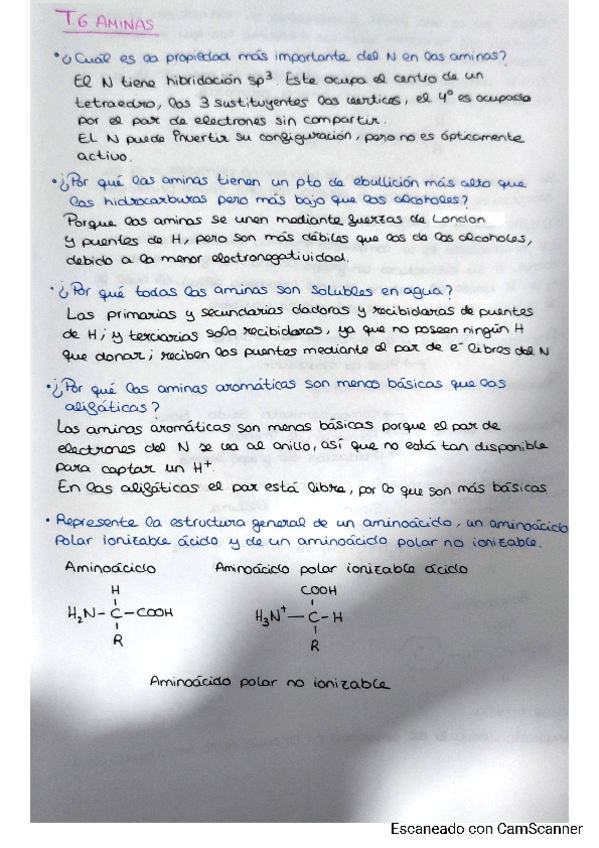 T.6 AMINAS
• ¿Cuál es la propiedad más importante del N en las aminas?
El N tiene hibridación sp³. Este ocupa el centro de un
tetraedro, los 3 sustituyentes los vertices, el 4º es ocupado
por el par de electrones sin compartir.
EL N puede invertir su configuración, pero no es ópticamente
activo.
• ¿Por qué las aminas tienen un pto de ebullición más alto que
los hidrocarburos pero más bajo que los alcoholes?
Porque las aminas se unen mediante fuerzas de London
y puentes de H, pero son más débiles que los de los alcoholes,
debido a la menor electronegatividad.
• ¿Por qué todas las aminas son solubles en agua?
Las primarias y secundarias dadoras y recibidoras de puentes
de H; y terciarias solo recibidoras, ya que no poseen ningún H
que donar; reciben los puentes mediante el par de e⁻ libres del N
• ¿Por qué las aminas aromáticas son menos básicas que las
alifáticas?
Las aminas aromáticas son menos básicas porque el par de
electrones del N se va al anillo, así que no está tan disponible
para captar un H⁺.
En las alifáticas el par está libre, por lo que son más básicas.
• Represente la estructura general de un aminoácido, un aminoácido
polar ionizable ácido y de un aminoácido polar no ionizable.
Aminoácido Aminoácido polar ionizable ácido
H COOH
H₂N-C-COOH H₃N⁺-C-H
R R
Aminoácido polar no ionizable
Escaneado con CamScanner